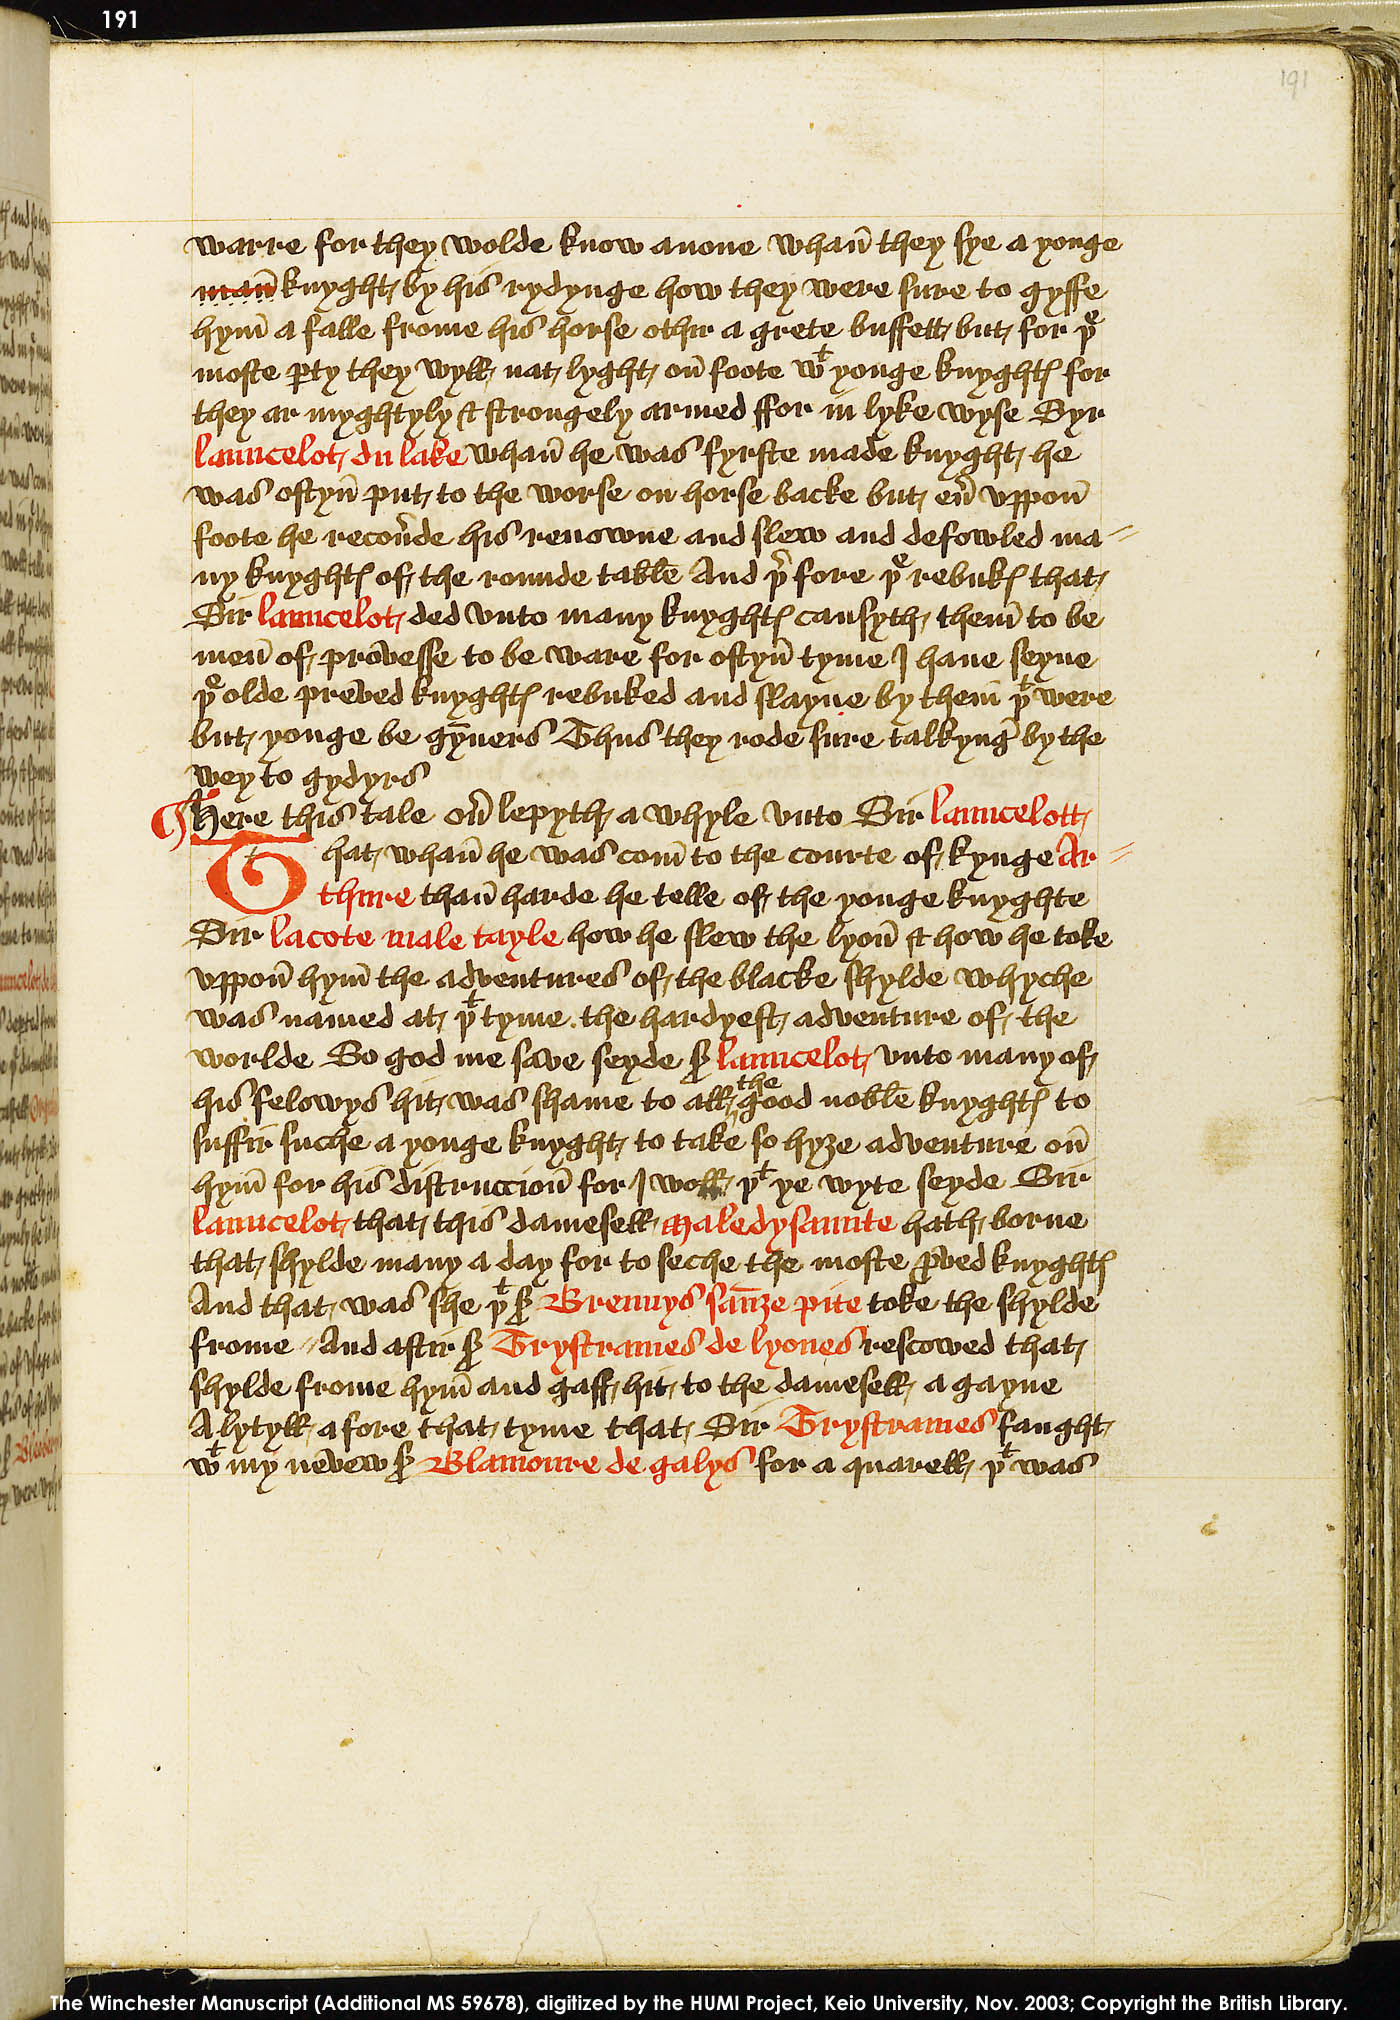 191
191
warre for they wolde know anone whan̄ they sye a yonge
man̄ knyght by his rydynge how they were sure to gyffe
hym̄ a falle frome his horse othir a grete buffett but for þe
moste ꝑty they wyll nat lyght on̄ foote wt yonge knyghtꝭ for
they ar myghtyly & strongely armed ffor in lyke wyse Syr
launcelot du lake whan̄ he was fyrste made knyght he
was oftyn̄ put to the worse on horse backe but eu̾ vppon̄
foote he recou̾de his renowne and slew and defowled ma=
ny knyghtꝭ of the rounde table And þ̾fore þe rebukꝭ that
Sir launcelot ded vnto many knyghtꝭ causyth them̄ to be
men̄ of provesse to be ware for oftyn̄ tyme I haue seyne
þe olde preved knyghtꝭ rebuked and slayne by them þt were
but yonge be gȳners Thus they rode sure talkyng̾ by the
wey to gydyrs
¶ here this tale ou̾ lepyth a whyle vnto Sir launcelott
That whan̄ he was com̄ to the courte of kynge Ar=
thure than̄ harde he telle of the yonge knyghte
Sir lacote male tayle how he slew the lyon̄ & how he toke
vppon̄ hym̄ the adventures of the blacke shylde whyche
was named at þt tyme the hardyest adventure of the
worlde So god me save seyde sr launcelot vnto many of
his felowys hit was shame to all the good noble knyghtꝭ to
suffir suche a yonge knyght to take so hyȝe adventure on̄
hym̄ for his distruccion̄ for I woll þt ye wyte seyde Sir
launcelot that this damesell Maledysaunte hath borne
that shylde many a day for to seche the moste ꝓved knyghtꝭ
And that was she þt sr Brennys san̄ze pite toke the shylde
frome And aftir sr Trystrames de lyones rescowed that
shylde frome hym̄ and gaff hit to the damesell a gayne
A lytyll a fore that tyme that Sir Trystrames faught
wt my nevew sr Blamoure de galys for a quarell þt was
The Winchester Manuscript (Additional MS 59678), digitized by the HUMI Project, Keio University, Nov. 2003; Copyright the British Library.